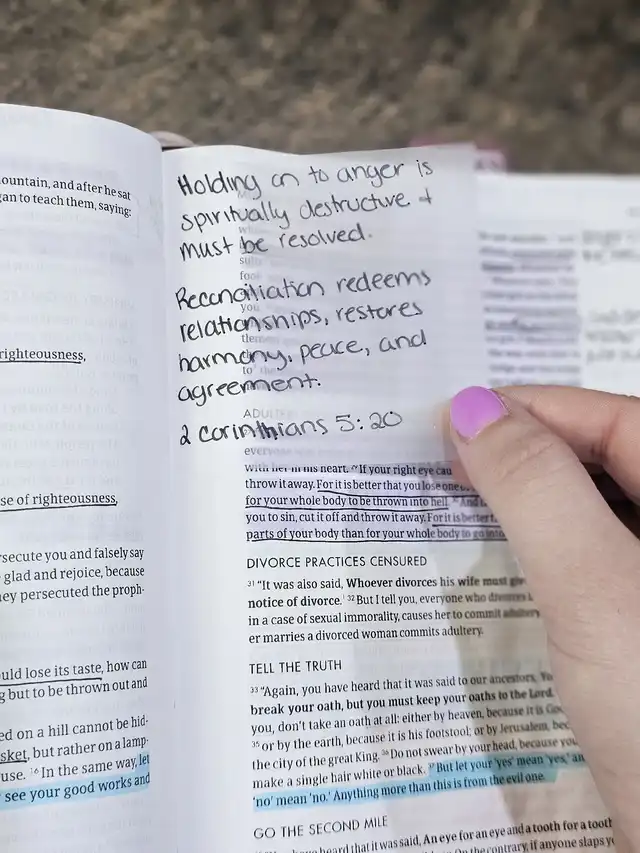 ountain, and after he sat
an to teach them, saying:
righteousness,
se of righteousness,
rsecute you and falsely say
glad and rejoice, because
ey persecuted the proph-
uld lose its taste, how can
g but to be thrown out and
ed on a hill cannot be hid-
sket, but rather on a lamp-
use. 16 In the same way, let
see your good works and
Holding on to anger is
spiritually destructive +
must be resolved.
Reconciliation redeems
relationships, restores
harmony, peace, and
agreement.
2 Corinthians 5:20
ADUL
every
with her in his heart. 29 If your right eye cau
throw it away. For it is better that you lose one
for your whole body to be thrown into hell. 30 And
you to sin, cut it off and throw it away. For it is better
parts of your body than for your whole body to go into
DIVORCE PRACTICES CENSURED
31 "It was also said, Whoever divorces his wife must giv
notice of divorce. 32 But I tell you, everyone who divorces
in a case of sexual immorality, causes her to commit adultery.
er marries a divorced woman commits adultery.
TELL THE TRUTH
33 "Again, you have heard that it was said to our ancestors, You
break your oath, but you must keep your oaths to the Lord.
you, don't take an oath at all: either by heaven, because it is God
35 or by the earth, because it is his footstool; or by Jerusalem, bec
the city of the great King. 36 Do not swear by your head, because you
make a single hair white or black. 37 But let your 'yes' mean 'yes,' an
'no' mean 'no.' Anything more than this is from the evil one.
GO THE SECOND MILE
have heard that it was said, An eye for an eye and a tooth for a tooth
On the contrary, if anyone slaps yo